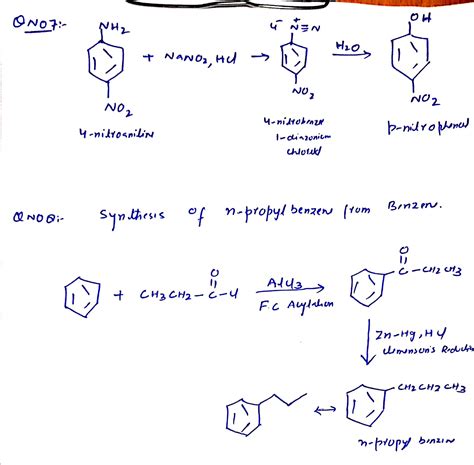 QNO7:-
NH2
+ NaNO2, HCl →
Cl⁻ N⁺≡N
H2O
OH
NO2
NO2
NO2
4-nitroanilin
4-nitrobenze
1-diazonium
chlorid
p-nitrophenol
QNO8:- Synthesis of n-propyl benzen from Benzen.
+ CH3CH2-C-Cl
O
AlCl3
F.C Acylation
O
C-CH2CH3
Zn-Hg, HCl
Clemenson's Reduction
↔
-CH2CH2CH3
n-propyl benzen